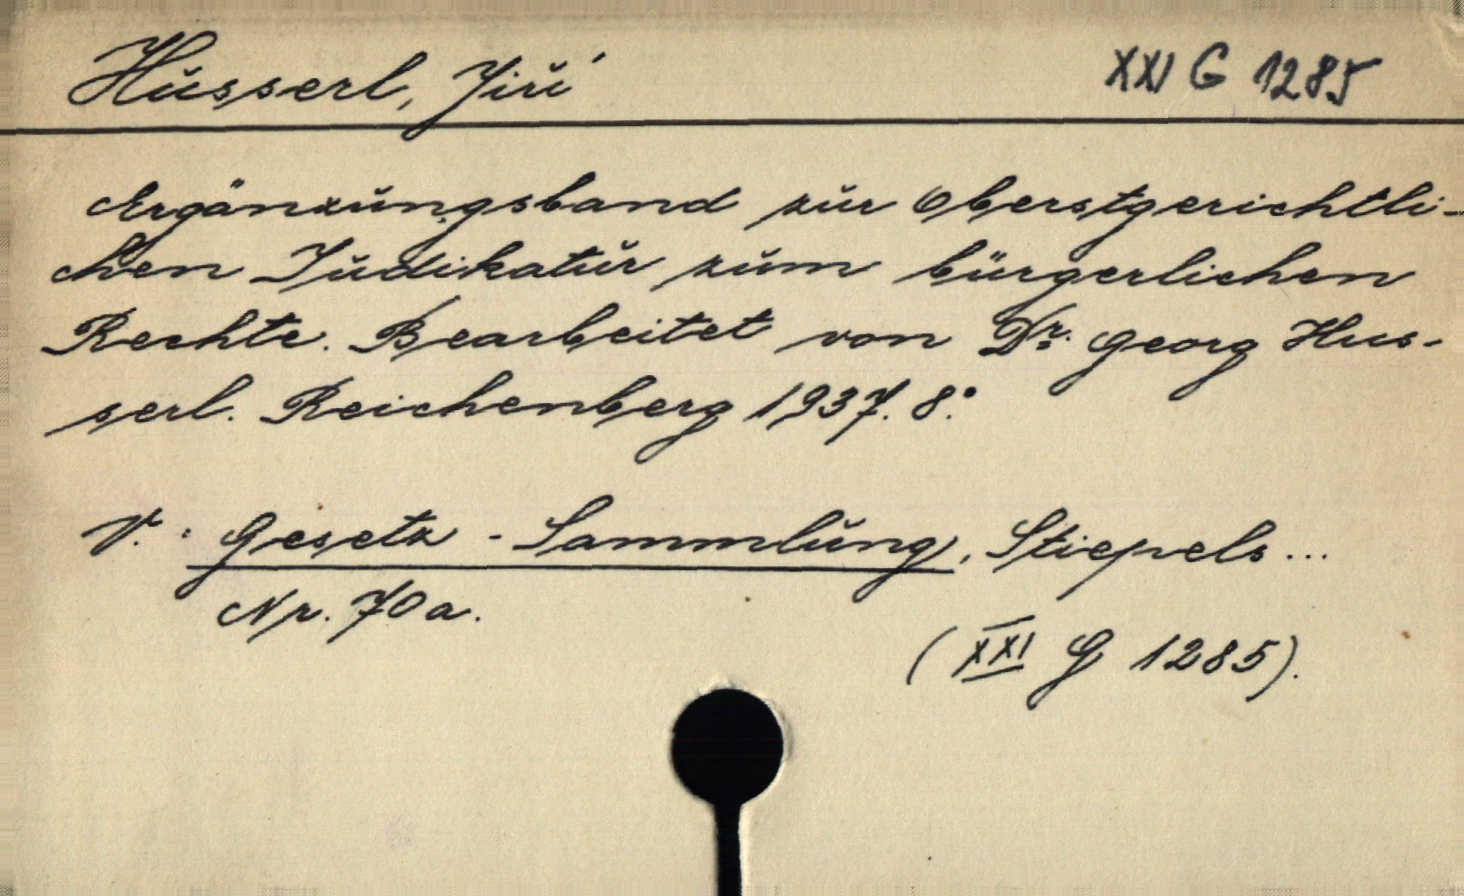 Husserl, Jiří XXI G 1285
Ergänzungsband zur Oberstgerichtli-
chen Judikatur zum bürgerlichen
Rechte. Bearbeitet von Dr. Georg Hus-
serl. Reichenberg 1937. 8°.
V.: Gesetz-Sammlung, Stiepels...
Nr. 70a.
(XXI G 1285).